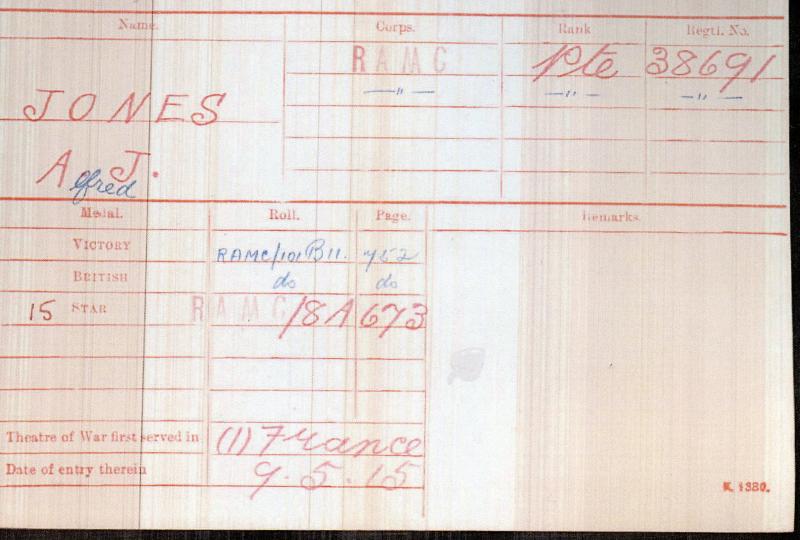 Name. Corps. Rank Regtl. No.
RAMC Pte 38691
—"— —"— —"—
JONES
A J.
lfred
Medal. Roll. Page. Remarks.
VICTORY RAMC/101 B11. 752
BRITISH do do
15 STAR RAMC/8A 673
Theatre of War first served in (1) France
Date of entry therein 9.5.15
K. 1380.